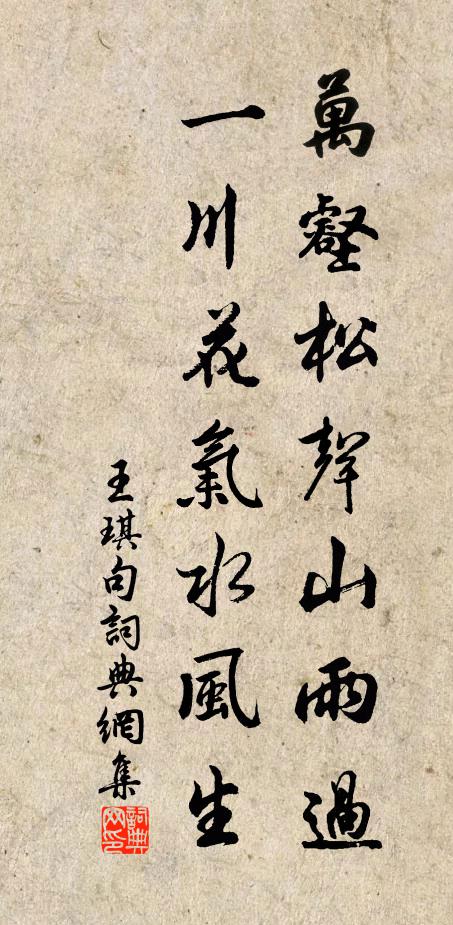 萬壑松聲山雨過
一川花氣水風生
王琪句詞典網集
詞典网印